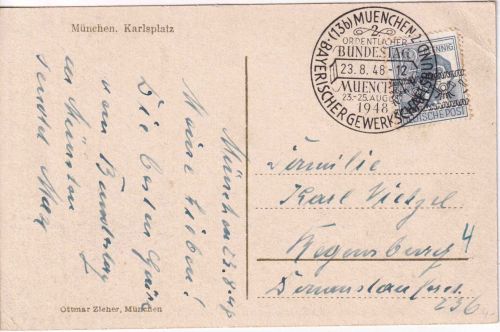 München, Karlsplatz
München 23.8.48
Meine Lieben!
Die besten Grüße
vom Bundestag
in München
sendet Max
Ottmar Zieher, München
(13b) MUENCHEN 2
2.
ORDENTLICHER
BUNDESTAG
23.8.48-12
MUENCHEN
23.-25. AUGUST
1948
BAYERISCHER GEWERKSCHAFTSBUND
PFENNIG
DEUTSCHE POST
Familie
Karl
Regensburg 4
236